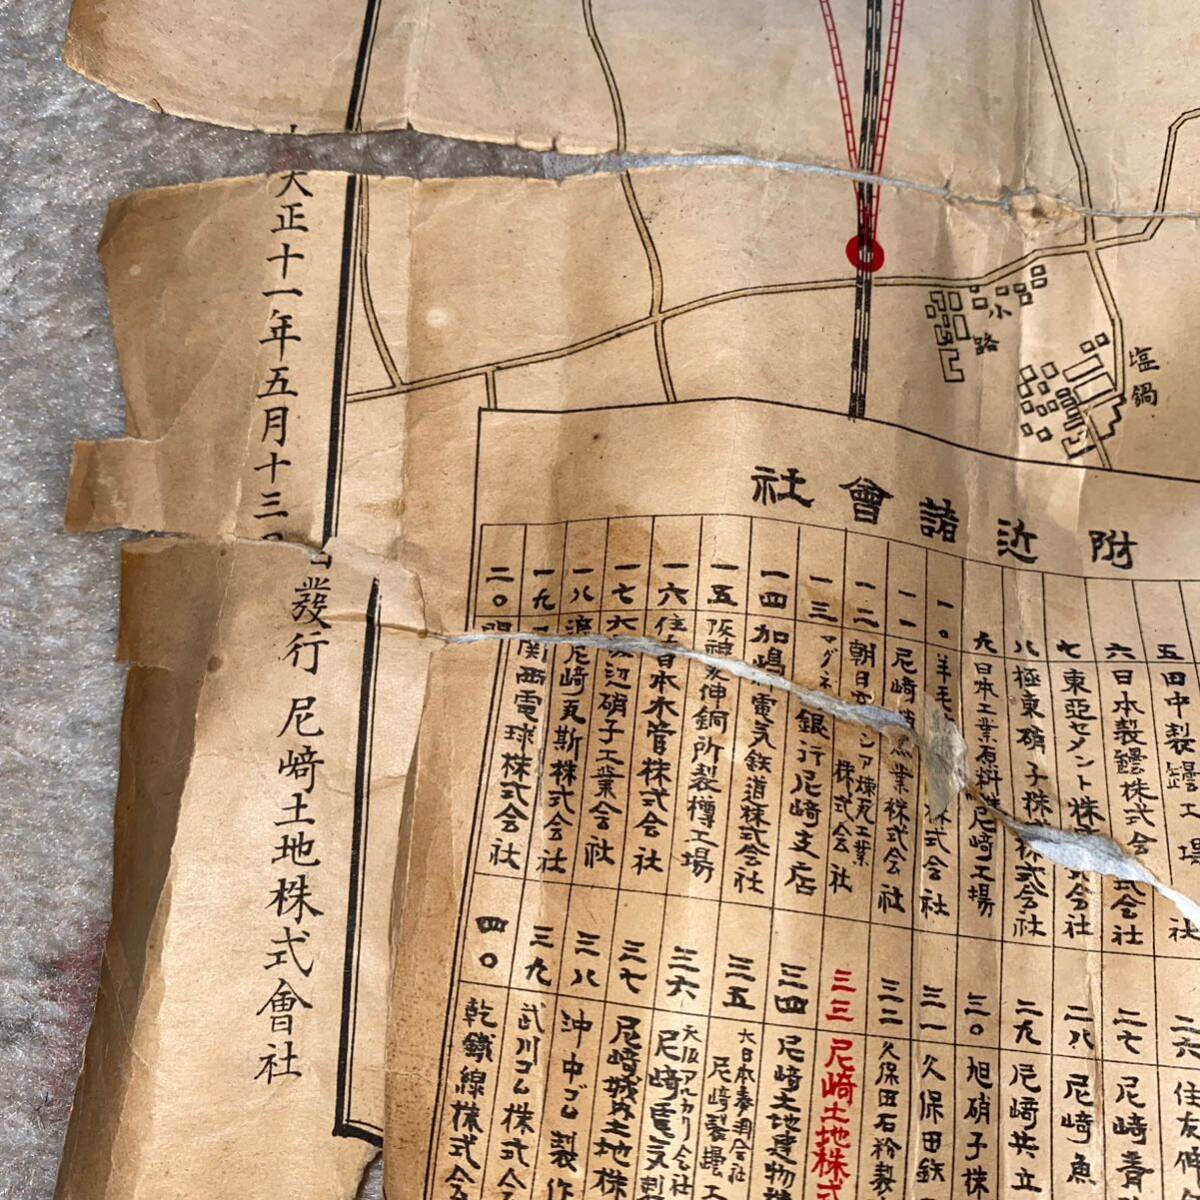 附近諸會社
五 田中製罎工場
六 日本製罎株式会社
七 東亞セメント株式会社
八 極東硝子株式会社
九 日本工業原料株 尼﨑工場
一〇 羊毛 株式会社
一一 尼﨑 業株式会社
一二 朝日 煉瓦工業株式会社
一三 銀行尼﨑支店
一四 加嶋 電気鉄道株式会社
一五 阪神 伸銅所製樽工場
一六 住 日本木管株式会社
一七 大 辺硝子工業会社
一八 尼﨑瓦斯株式会社
一九 関西電球株式会社
二〇
二六 住友伸
二七 尼﨑青
二八 尼﨑魚
二九 尼﨑共立
三〇 旭硝子株
三一 久保田鉄
三二 久保田石粉製
三三 尼﨑土地株式
三四 尼﨑土地建物
三五 大日本麥酒会社 尼﨑製罎工
三六 大阪アルカリ会社 尼﨑電気
三七 尼﨑城内土地株
三八 沖中ゴム製作
三九 武川ゴム株式
四〇 乾鐵線株式会
小路
塩鍋
大正十一年五月十三日發行 尼﨑土地株式會社